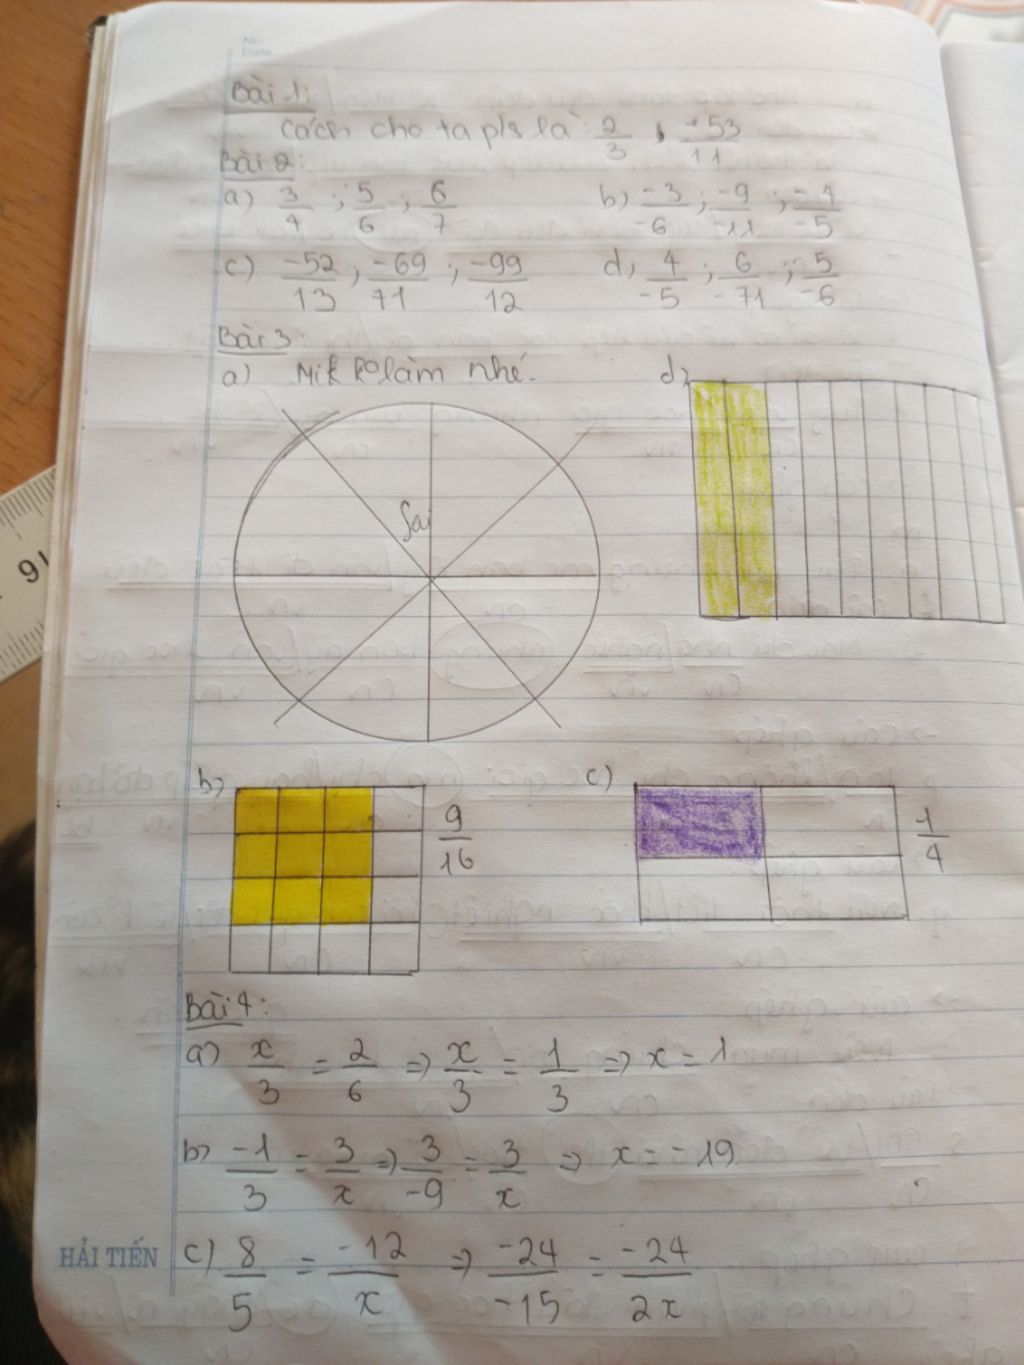 No.
Date
Bài 1:
Cách cho ta p/s là 2/3, -53/11
Bài 2:
a) 3/4 ; 5/6 ; 6/7 b) -3/-6 ; -9/-11 ; -4/-5
c) -52/13 ; -69/71 ; -99/12 d, 4/-5 ; 6/-71 ; 5/-6
Bài 3:
a) Mik ko làm nhé. d,
Sai
b, 9/16 c) 1/4
Bài 4:
a) x/3 = 2/6 => x/3 = 1/3 => x = 1
b) -1/3 = 3/x => 3/-9 = 3/x => x = -19
HẢI TIẾN c) 8/5 = -12/x => -24/-15 = -24/2x
91